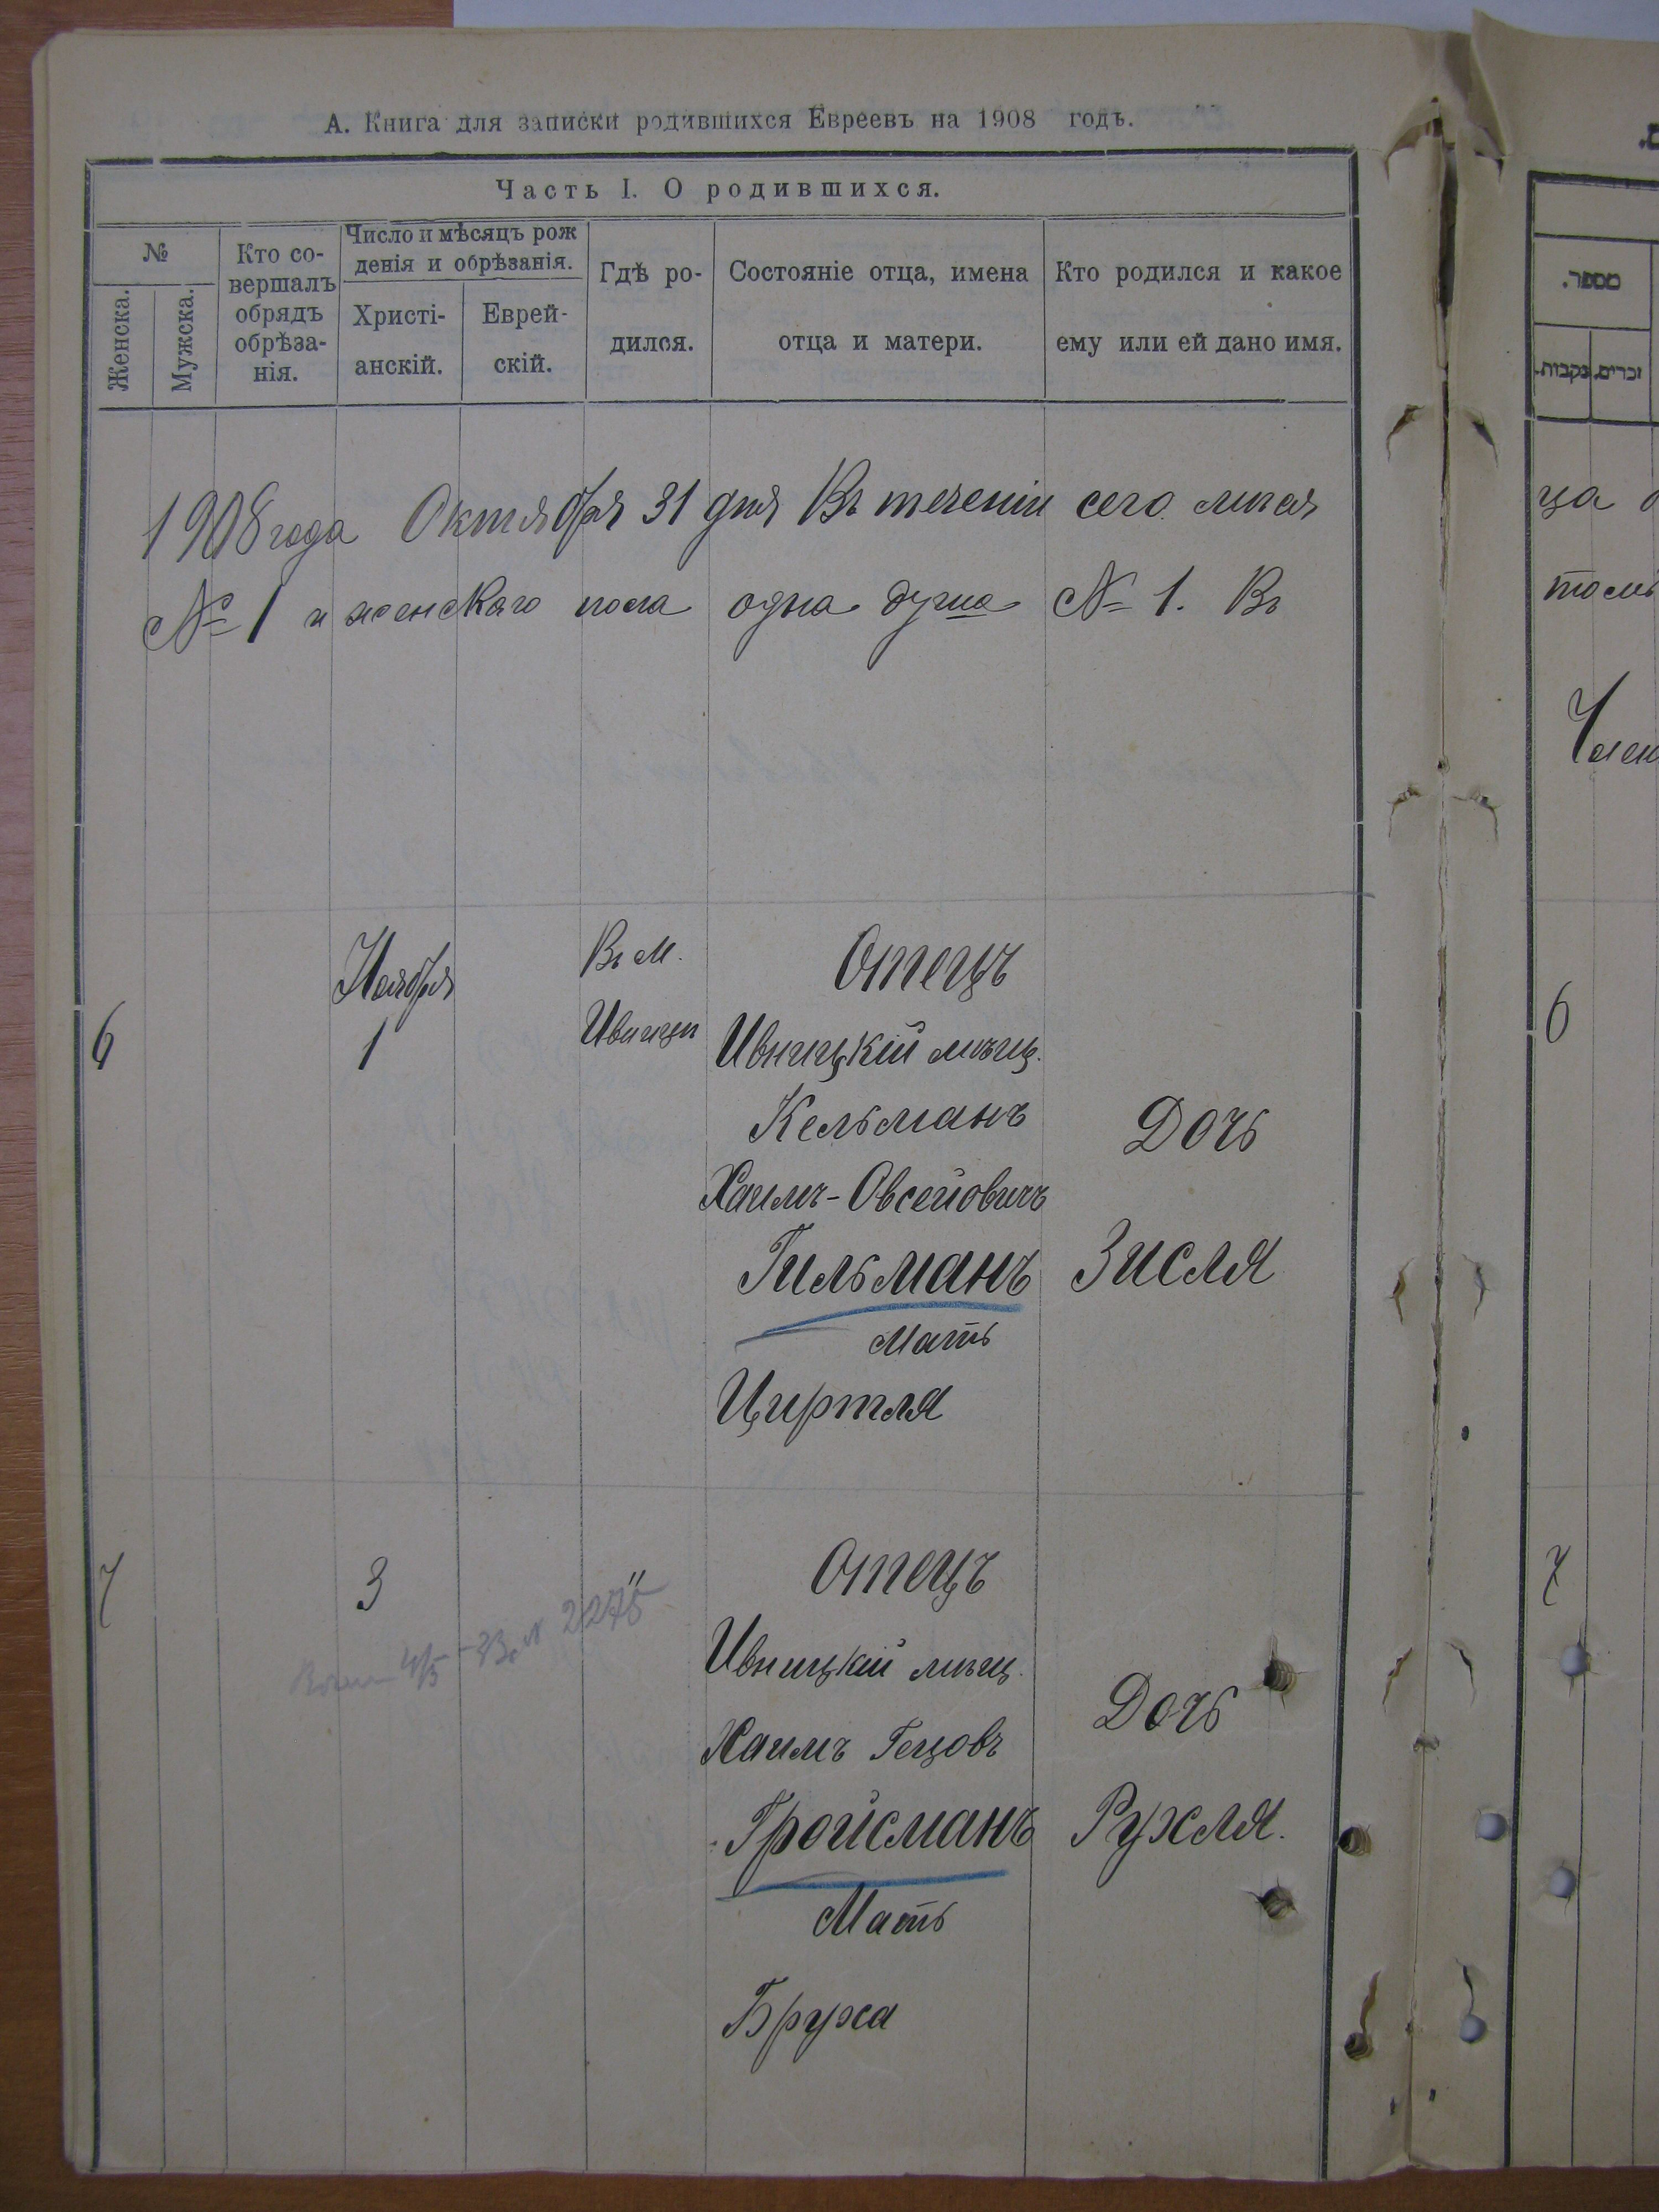 А. Книга для записки родившихся Евреевъ на 1908 годъ.
Часть I. О родившихся.
№
Женска.
Мужска.
Кто со-
вершалъ
обрядъ
обрѣза-
нія.
Число и мѣсяцъ рож
денія и обрѣзанія.
Христі-
анскій.
Еврей-
скій.
Гдѣ ро-
дился.
Состояніе отца, имена
отца и матери.
Кто родился и какое
ему или ей дано имя.
1908 года Октября 31 дня Въ теченіи сего
№ 1 и женскаго пола одна душа № 1. Въ
6
Ноября
1
Въ М.
Ивницы
Отецъ
Ивницкій мѣщ.
Кельманъ
Хаимъ-Овсейовичъ
Гильманъ
Мать
Циртля
Дочь
Зисля
7
3
"
2275
Отецъ
Ивницкій мѣщ.
Хаимъ Гецовъ
Гройсманъ
Мать
Бруха
Дочь
Рухля.
מספר.
נקבות.
זכרים.
ца
6
7